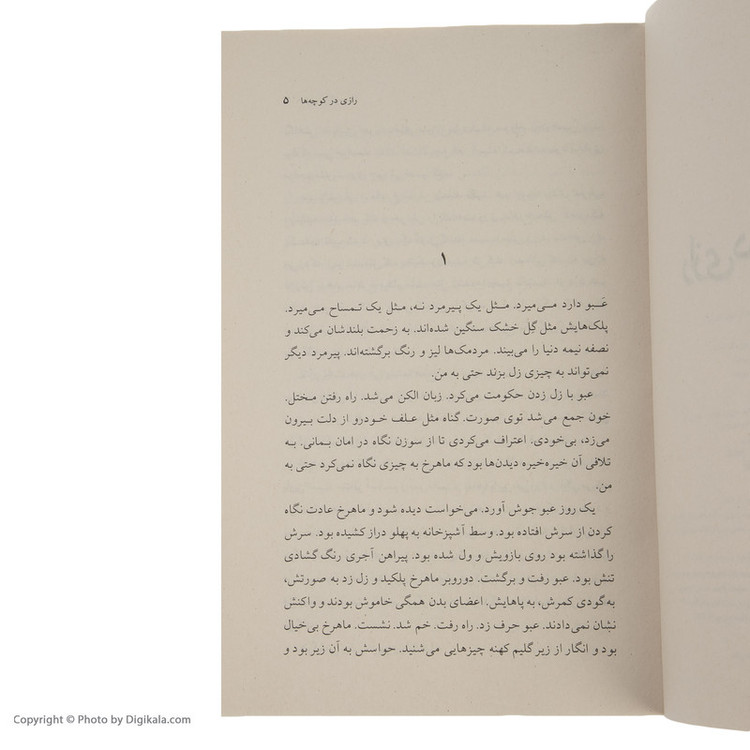 رازی در کوچه‌ها ۵
۱
عَـبو دارد مـی‌میرد. مثـل یک پـیرمرد نـه، مـثل یک تـمساح مـی‌میرد.
پلک‌هایش مثل گِل خشک سنگین شده‌اند. به زحمت بلندشان می‌کند و
نصفه نیمه دنیا را می‌بیند. مردمک‌ها لیز و رنگ برگشته‌اند. پیرمرد دیگر
نمی‌تواند به چیزی زل بزند حتی به من.
عبو با زل زدن حکومت می‌کرد. زبان الکن می‌شد. راه رفتن مـختل.
خون جمع می‌شد توی صورت. گناه مثل علف خودرو از دلت بیـرون
می‌زد، بی‌خودی. اعتراف می‌کردی تا از سوزن نگاه در امان بمـانی. بـه
تلافی آن خیره‌خیره دیدن‌ها بود که ماهرخ به چیزی نگاه نمی‌کرد حتی به
من.
یک روز عبو جوش آورد. می‌خواست دیده شود و ماهرخ عادت نگاه
کردن از سرش افتاده بود. وسط آشپزخانه به پهلو دراز کشیده بود. سرش
را گذاشته بود روی بازویش و ول شده بود. پیراهن آجری رنگ گشادی
تنش بود. عبو رفت و برگشت. دوروبر ماهرخ پلکید و زل زد به صورتش،
به‌گودی کمرش، به پاهایش. اعضای بدن همگی خاموش بودند و واکنش
نشان نمی‌دادند. عبو حرف زد. راه رفت. خم شد. نشست. ماهرخ بی‌خیال
بود و انگار از زیر گلیم کهنه چیزهایی می‌شنید. حواسش به آن زیر بود و
Copyright © Photo by Digikala.com